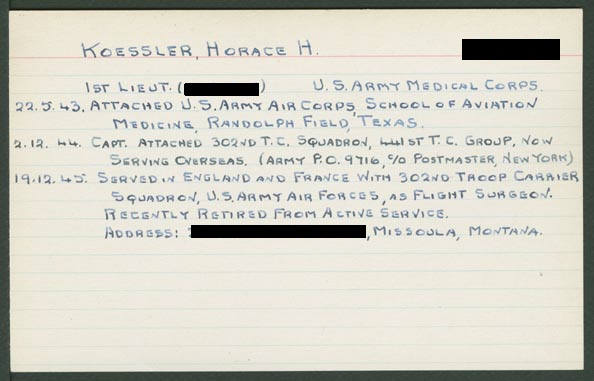 KOESSLER, HORACE H.
1ST LIEUT. ( ) U.S. ARMY MEDICAL CORPS.
22.5.43. ATTACHED U.S. ARMY AIR CORPS SCHOOL OF AVIATION
MEDICINE, RANDOLPH FIELD, TEXAS.
2.12.44. CAPT. ATTACHED 302ND T.C. SQUADRON, 441ST T.C. GROUP, NOW
SERVING OVERSEAS. (ARMY P.O. 9716, C/O POSTMASTER, NEW YORK)
19.12.45. SERVED IN ENGLAND AND FRANCE WITH 302ND TROOP CARRIER
SQUADRON, U.S. ARMY AIR FORCES, AS FLIGHT SURGEON.
RECENTLY RETIRED FROM ACTIVE SERVICE.
ADDRESS: , MISSOULA, MONTANA.